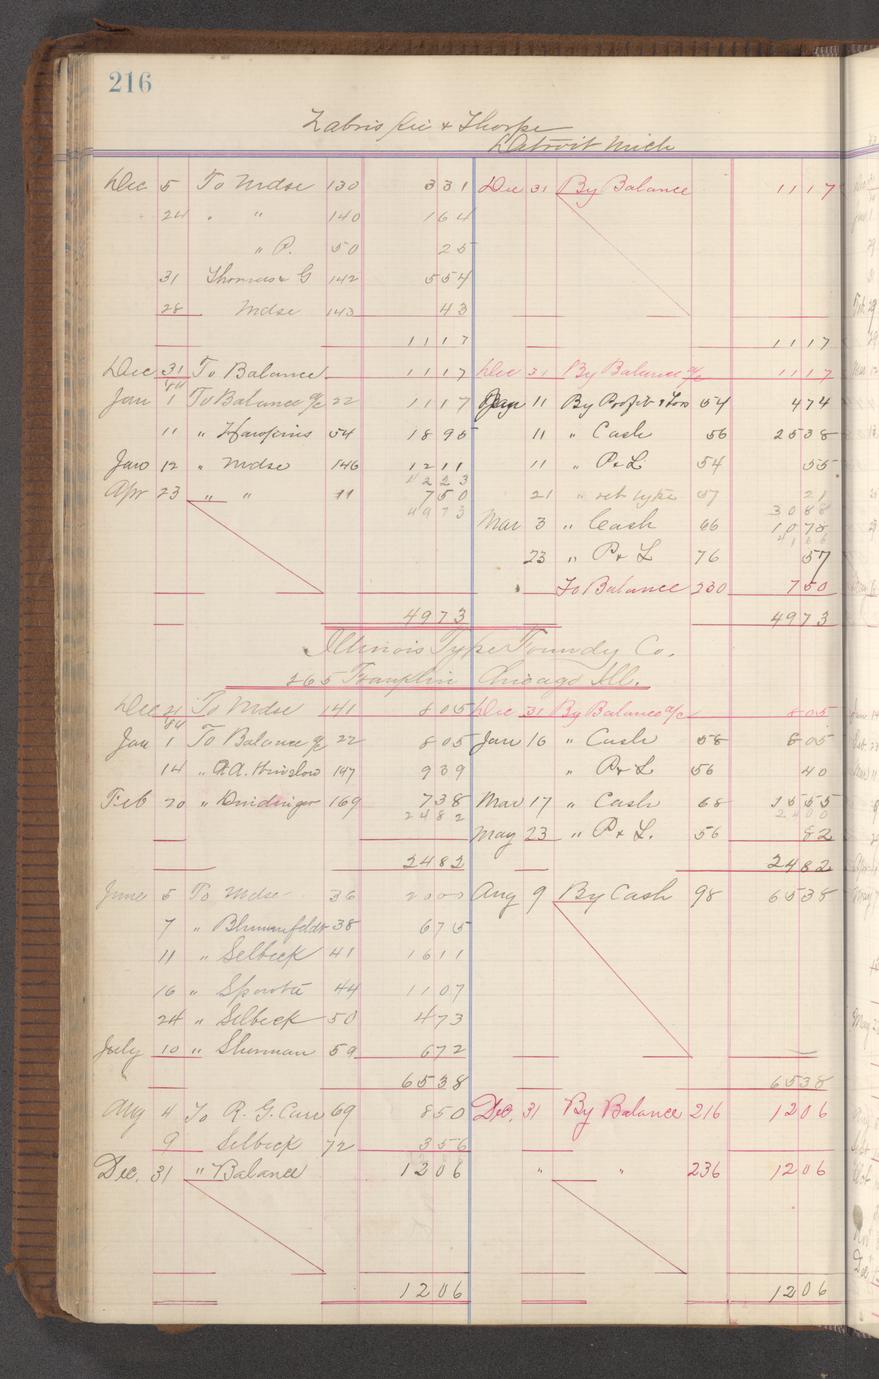 216
Zabriskie & Thorpe
Detroit Mich
Dec 5 To Mdse 130 331 Dec 31 By Balance 1117
24 " " 140 164
" P. 50 25
31 Thomas & G 142 554
28 Mdse 143 43
1117 1117
Dec 31 To Balance 1117 Dec 31 By Balance a/c 1117
84
Jan 1 To Balance a/c 22 1117 Jan 11 By Profit & Loss 54 474
11 " Hawkins 54 1895 11 " Cash 56 2538
Jan 12 " Mdse 146 1211 11 " P & L 54 55
4223
Apr 23 " " 11 750 21 " ret 57 21
4973 3088
Mar 3 " Cash 66 1078
4166
23 " P & L 76 57
To Balance 230 750
4973 4973
Illinois Type Foundy Co.
265 Franklin Chicago Ill.
Dec 21 To Mdse 141 805 Dec 31 By Balance a/c 805
84
Jan 1 To Balance a/c 22 805 Jan 16 " Cash 58 805
14 " A.A. Winslow 147 939 " P & L 56 40
Feb 20 " 169 738 Mar 17 " Cash 68 1555
2482 2400
May 23 " P & L. 56 82
2482 2482
June 5 To Mdse 36 2000 Aug 9 By Cash 98 6538
7 " Blumenfeldt 38 675
11 " Selbeck 41 1611
16 " 44 1107
24 " Selbeck 50 473
July 10 " Sherman 59 672
6538 6538
Aug 4 To R. G. Care 69 850 Dec. 31 By Balance 216 1206
9 Selbeck 72 356
Dec. 31 " Balance 1206 " " 236 1206
1206 1206